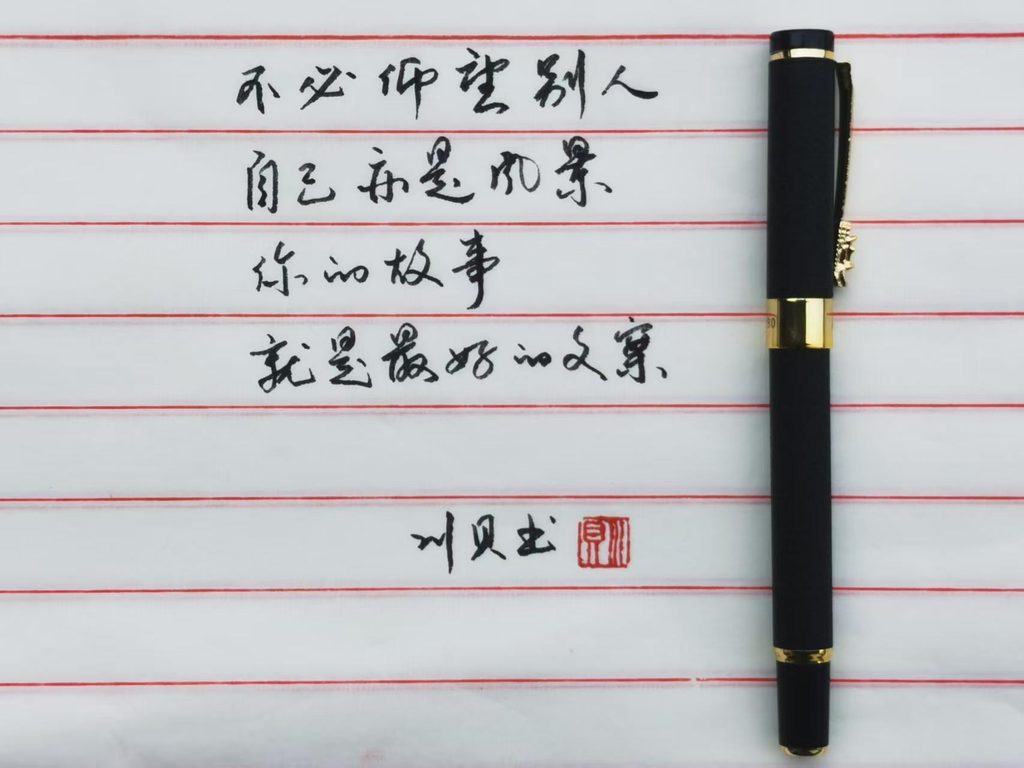 不必仰望别人
自己亦是风景
你的故事
就是最好的文案
川贝书
川貝
80